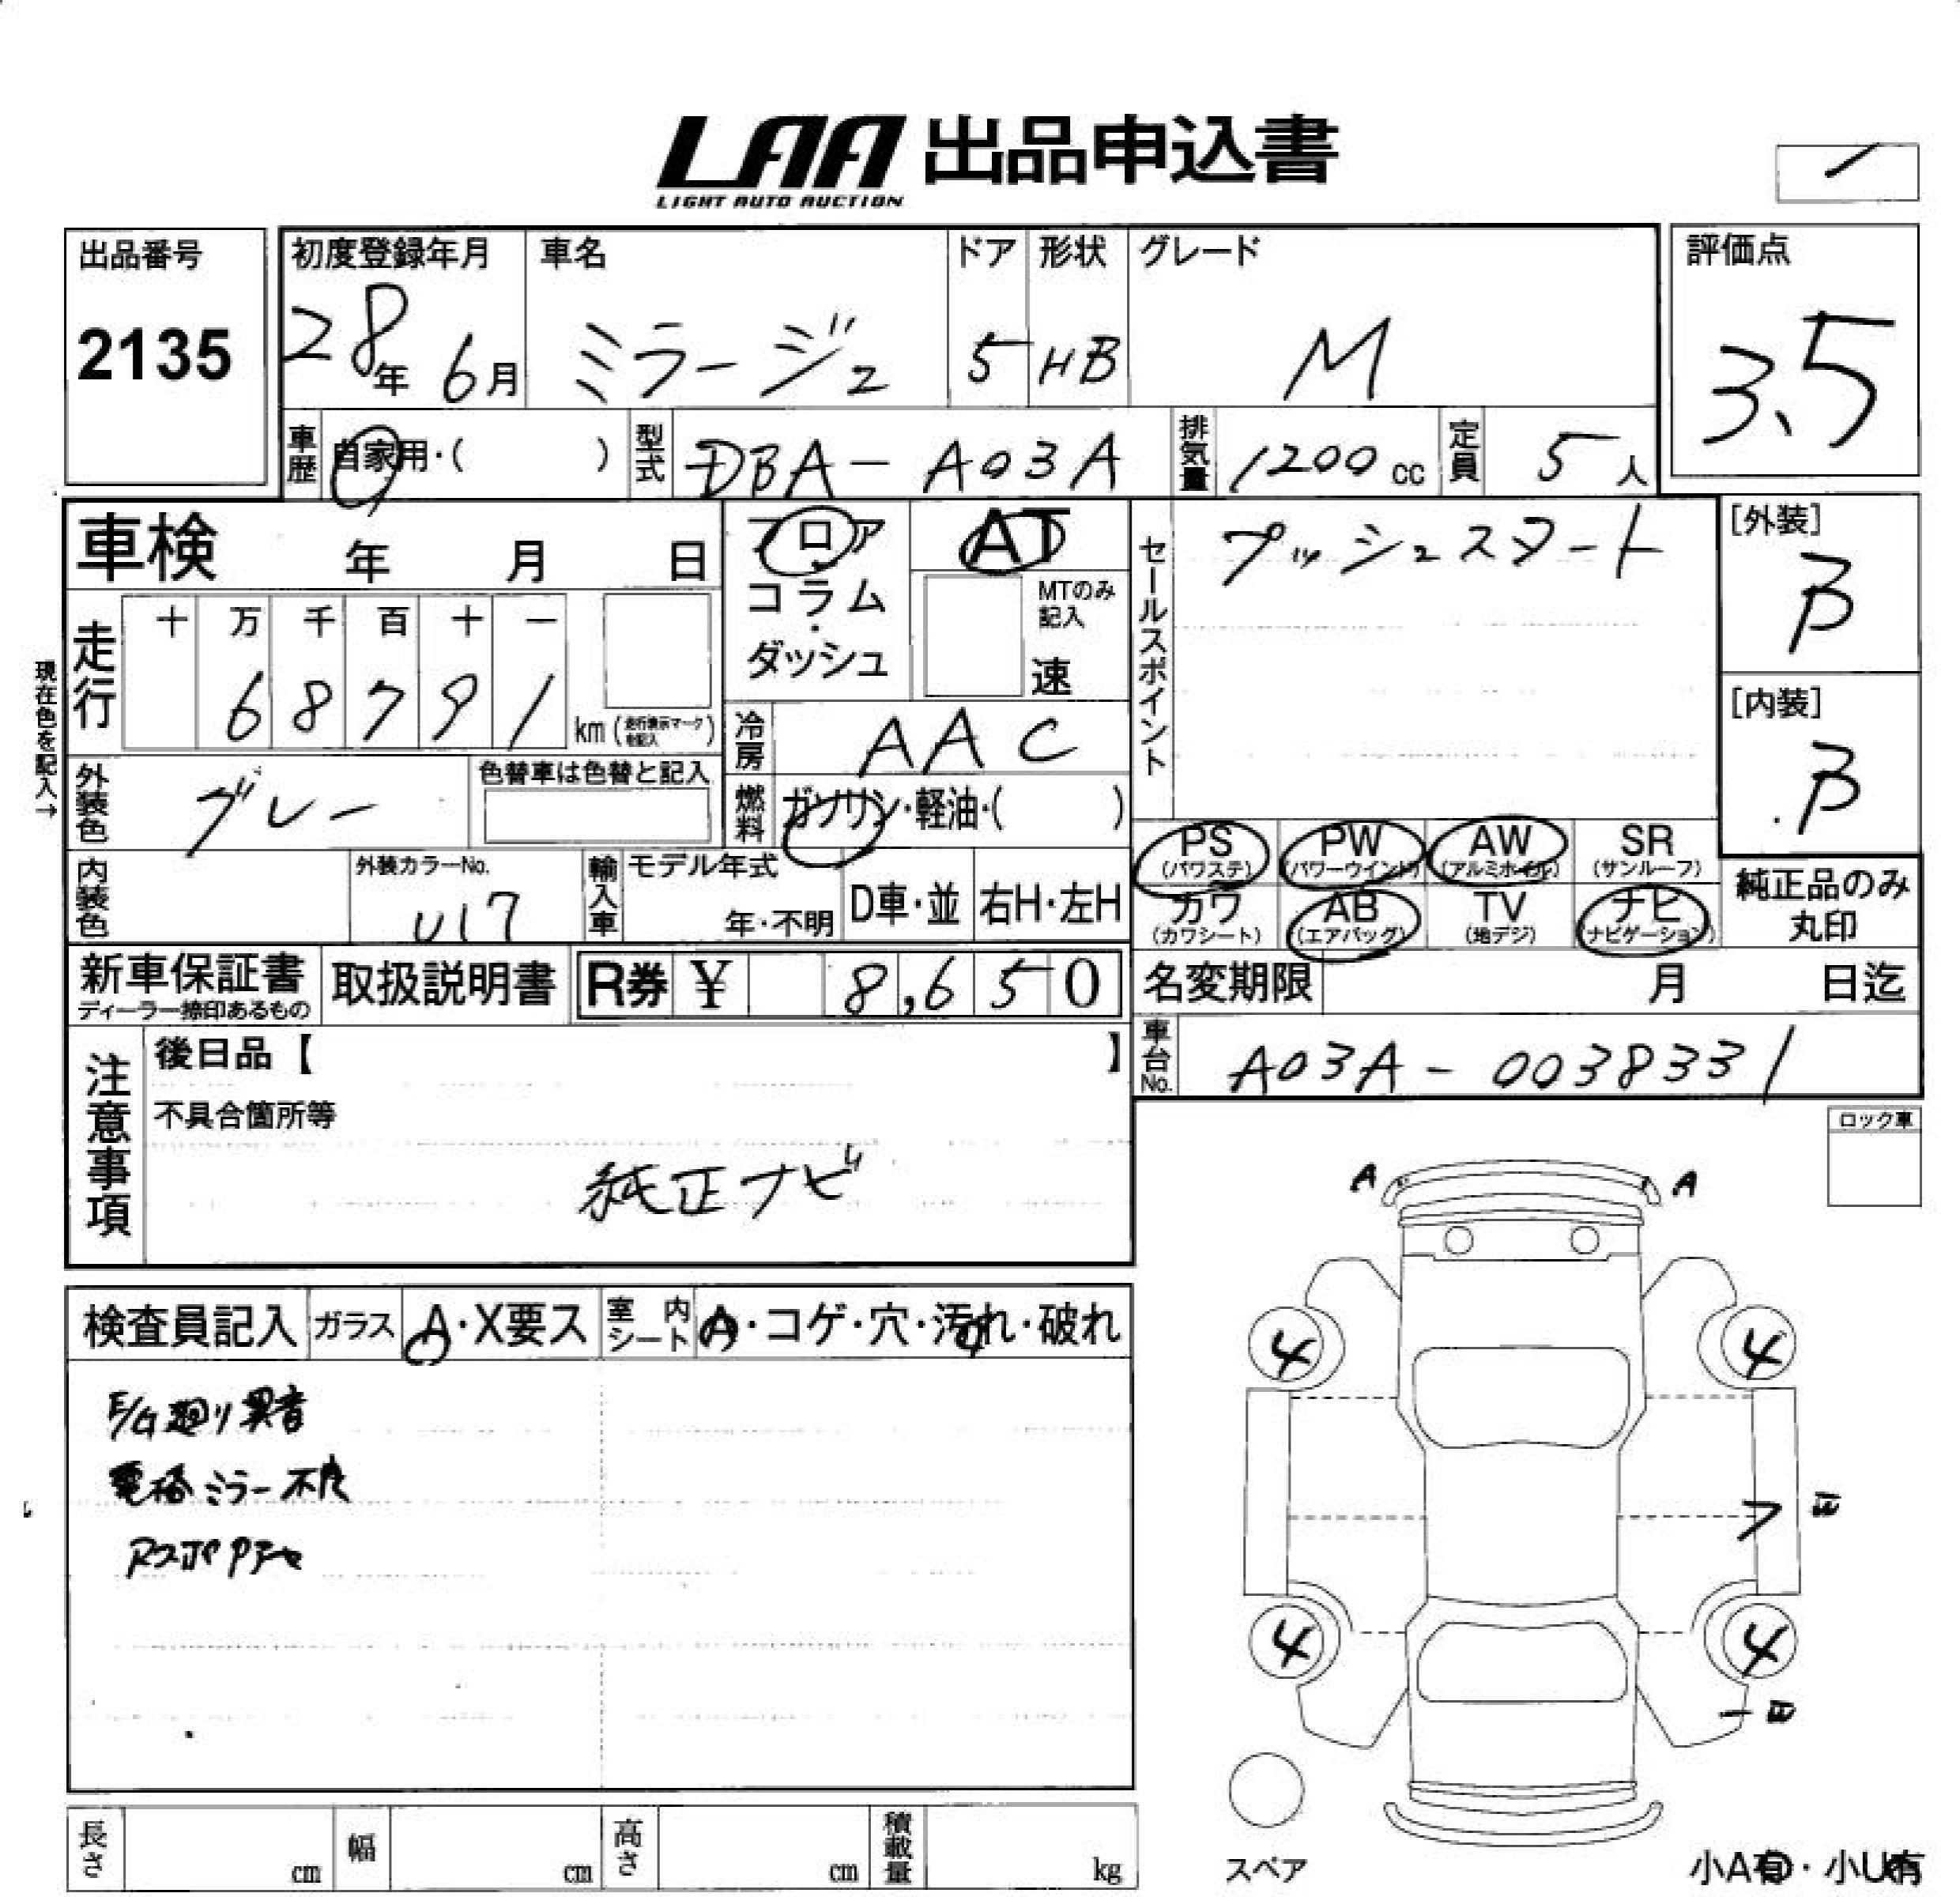 LAA 出品申込書
LIGHT AUTO AUCTION
出品番号
2135
初度登録年月
28年 6月
車名
ミラージュ
ドア
5
形状
HB
グレード
M
評価点
3.5
車歴 自家用・( )
型式 DBA-A03A
排気量 1200 cc
定員 5 人
車検 年 月 日
フロア
コラム
・
ダッシュ
AT
MTのみ
記入
速
セールスポイント
プッシュスタート
[外装]
B
[内装]
B
現在色を記入→
走行
十 万 千 百 十 一
6 8 7 9 1
km (走行表示マークを記入)
冷房 AAC
外装色 グレー
色替車は色替と記入
燃料 ガソリン・軽油・( )
PS (パワステ)
PW (パワーウインド)
AW (アルミホイル)
SR (サンルーフ)
カワ (カワシート)
AB (エアバッグ)
TV (地デジ)
ナビ (ナビゲーション)
純正品のみ
丸印
内装色
外装カラーNo.
U17
輸入車
モデル年式
年・不明
D車・並
右H・左H
新車保証書
ディーラー捺印あるもの
取扱説明書
R券 ¥ 8,650
名変期限 月 日迄
車台No. A03A-0038331
注意事項
後日品【 】
不具合箇所等
純正ナビ
ロック車
検査員記入
ガラス A・X要ス
室内シート A・コゲ・穴・汚れ・破れ
E/G廻り異音
電格ミラー不良
A A
4 4
4 4
長さ cm
幅 cm
高さ cm
積載量 kg
スペア
小A有・小U有